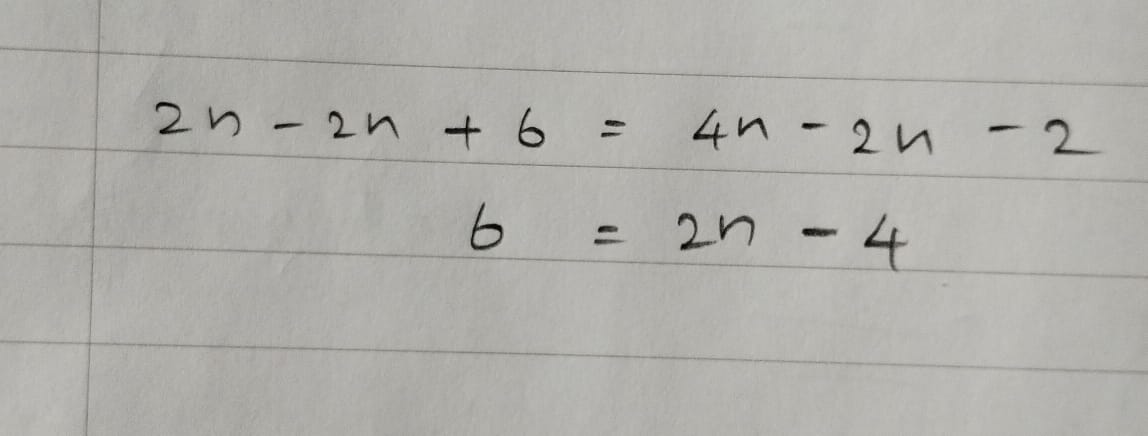 2n - 2n + 6 = 4n - 2n - 2
6 = 2n - 4